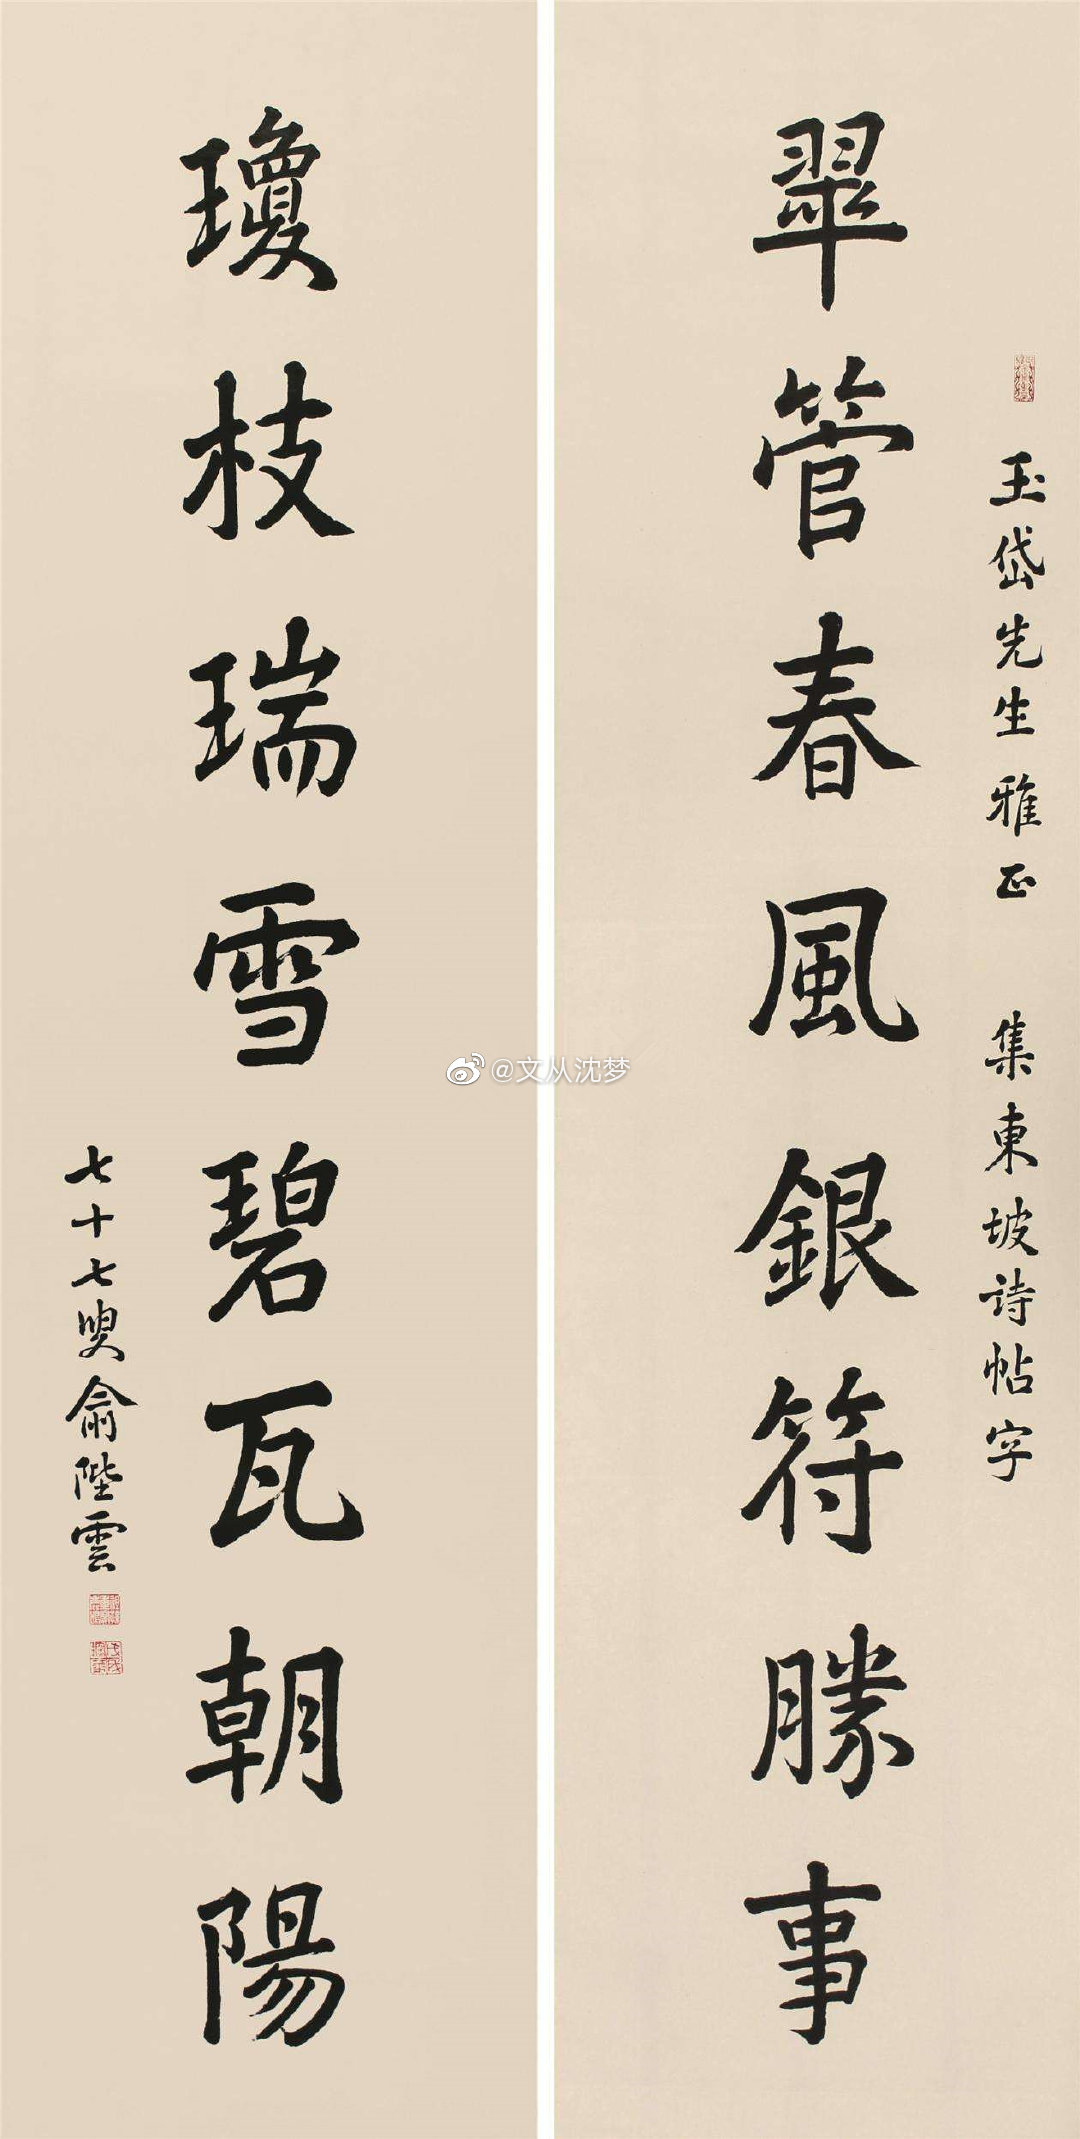 玉岱先生雅正 集東坡詩帖字
翠管春風銀符勝事
瓊枝瑞雪碧瓦朝陽
七十七叟俞陛雲
@文从沈梦